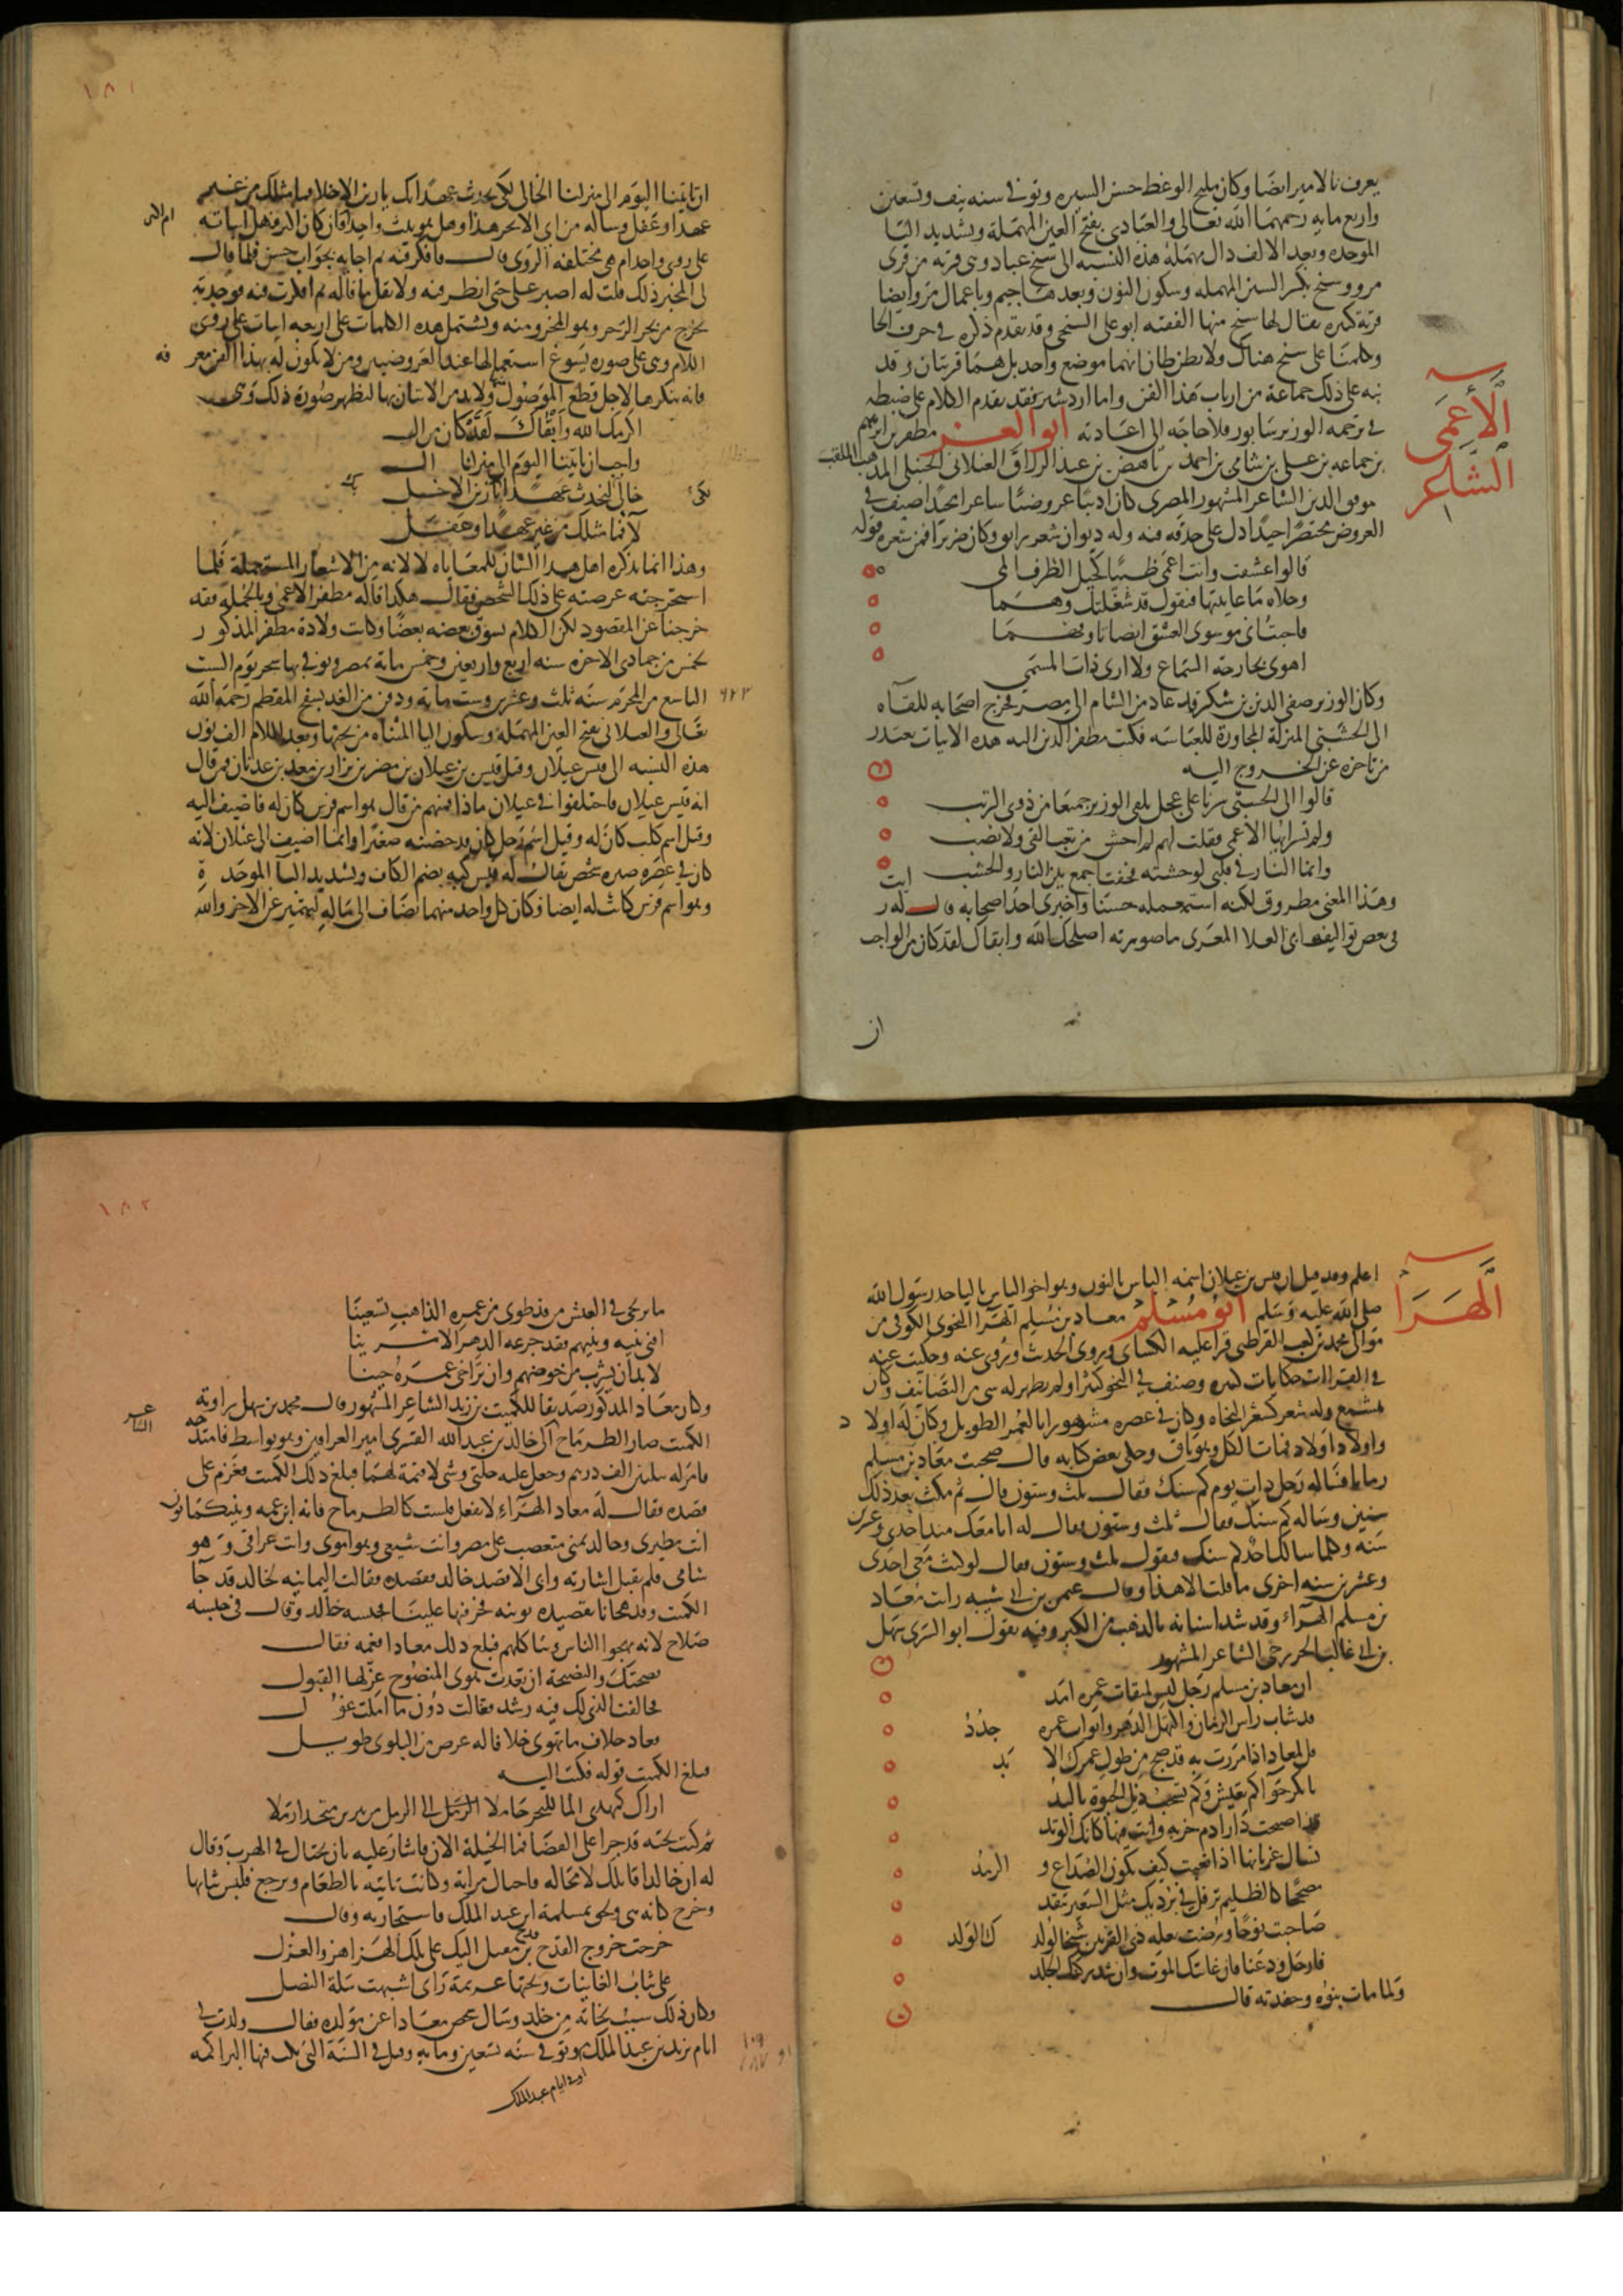 يعرف بالامير ايضا وكان مليح الوعظ حسن السيره وتوفي سنه نيف وتسعين
واربع مايه رحمهما الله تعالى والعبادى بفتح العين المهملة وتشديد البا
الموحده وبعد الالف دال مهملة هذه النسبه الى سنج عباد وهى قرية من قرى
مرو وسنج بكسر السين المهمله وسكون النون وبعدها جيم وباعمال مرو ايضا
قرية كبيره يقال لها سنج منها الفقيه ابو على السنجى وقد تقدم ذكره في حرف الحا
وكلمنا على سنج هناك ولا يظن ظان انهما موضع واحد بل هما قريتان وقد
نبه على ذلك جماعة من ارباب هذا الفن واما اردشير فقد تقدم الكلام على ضبطه
في ترجمه الوزير سابور فلا حاجه الى اعادته ابو العز مظفر بن ابرهيم
بن جماعه بن على بن شامى بن احمد بن ناهض بن عبد الرزاق العيلانى الحنبلى المذهب الملقب
الأعمى
الشاعر
موفق الدين الشاعر المشهور المصرى كان اديبا عروضيا شاعرا مجيدا صنف في
العروض مختصرا جيدا دل على حذقه فيه وله ديوان شعر رايق وكان ضريرا فمن شعره قوله
قالوا عشقت وانت اعمى ظبيا كحيل الطرف المى
وحلاه ما عاينتها فنقول قد شغلتك وهما
فاجبت انى موسوى العشق ايضا نا وفهما
اهوى بجارحه السماع ولا ارى ذات المسمى
وكان الوزير صفى الدين بن شكر قد عاد من الشام الى مصر فخرج اصحابه للقآه
الى الخشبى المنزلة المجاورة للعباسه فكتب مظفر الدين اليه هذه الابيات يعتذر
من تاخره عن الخروج اليه
قالوا الى الخشبى سرنا على عجل نلقى الوزير جميعا من ذوى الرتب
ولم تسر ايها الاعمى فقلت لهم لم اخش من تعب القى ولا نصب
وانما النار في قلبى لوحشته فخفت اجمع بين النار والخشب
وهذا المعنى مطروق لكنه استعمله حسنا واخبرنى احد اصحابه قال له رايت
في بعض تواليف ابى العلا المعرى ما صورته اصلحك الله وابقاك لقد كان من الواجب
ان
١٨١
ان تاتينا اليوم الى منزلنا الخالى لكى نحدث عهدا بك يا زين الاخلا فما مثلك من غير
عهدا او غفل وساله من اى الابحر هذا وهل هو بيت واحد فان كان اكثر فهل ابياته ام اكثر
على روى واحد ام هى مختلفه الروى قال فافكر فيه ثم اجابه بجواب حسن فلما قال
لى المخبر ذلك قلت له اصبر على حتى انظر فيه ولا تقل ما قاله ثم افكرت فيه فوجدته
يخرج من بحر الرجز وهو المجزو منه وتشتمل هذه الكلمات على اربعه ابيات على روى
اللام وهى على صوره يسوغ استعمالها عند العروضيين ومن لا يكون له بهذا الفن معرفه
فانه ينكرها لاجل قطع الموصول منها ولا بد من الاتيان بها لتظهر صورة ذلك وهى
اكرمك الله وابقاك لقد كان من ال
واجب ان تاتينا اليوم الى منزلنا ال
خالى لكى نحدث عهدا بك يا زين الاخل
لا فما مثلك من غير عهدا وغفل
وهذا انما يذكره اهل هذا الشان للمعاياه لا لانه من الاشعار المستعملة فلما
استخرجته عرضته على ذلك الشخص فقال هكذا قاله مظفر الاعمى وبالجمله فقد
خرجنا عن المقصود لكن الكلام يسوق بعضه بعضا وكانت ولادة مظفر المذكور
لخمس من جمادى الاخره سنه اربع واربعين وخمس مايه بمصر وتوفي بها سحر يوم السبت
التاسع من المحرم سنه ثلث وعشرين وست مايه ودفن من الغد بسفح المقطم رحمه الله ٦٢٣
تعالى والعيلانى بفتح العين المهملة وسكون اليا المثناه من تحتها وبعد اللام الف نون
هذه النسبه الى قيس عيلان وقيل قيس بن عيلان بن مضر بن نزار بن معد بن عدنان فمن قال
انه قيس عيلان فاختلفوا في عيلان ماذا فمنهم من قال هو اسم فرس كان له فاضيف اليه
وقيل اسم كلب كان له وقيل اسم رجل كان قد حضنه صغيرا وانما اضيف الى عيلان لانه
كان في عصره شخص يقال له قيس كبه بضم الكاف وتشديد البآ الموحدة
وهو اسم فرس كانت له ايضا فكان كل واحد منهما يضاف الى ماله ليتميز عن الاخر والله
اعلم وقد قيل ان قيس بن عيلان اسمه الناس بالنون وهو اخو الياس باليا جد رسول الله
صلى الله عليه وسلم ابو مسلم معاذ بن مسلم الهرا النحوى الكوفى من
الهرا
موالى محمد بن كعب القرظى قرا عليه الكساى وروى الحديث وروى عنه وحكيت عنه
في القراات حكايات كثيره وصنف في النحو كثيرا ولم يظهر له شى من التصانيف وكان
يتشيع وله شعر كشعر النحاه وكان في عصره مشهورا بالعمر الطويل وكان له اولاد
واولاد اولاد فمات الكل وهو باق وحكى بعض كتابه قال صحبت معاذ بن مسلم
زمانا فساله رجل ذات يوم كم سنك فقال ثلث وستون قال ثم مكث بعد ذلك
سنين وساله كم سنك فقال ثلث وستون فقال له انا معك منذ احدى وعشرين
سنه وكلما سالك احد كم سنك فتقول ثلث وستون فقال لو كنت معى احدى
وعشرين سنه اخرى ما قلت الا هذا وقال عثمن بن ابى شيبه رايت معاذ
بن مسلم الهرآء وقد شد اسنانه بالذهب من الكبر وفيه يقول ابو السرى سهل
بن ابى غالب الخزرجى الشاعر المشهور
ان معاذ بن مسلم رجل ليس لميقات عمره امد
قد شاب راس الزمان واكتهل الدهر واثواب عمره جدد
قل لمعاذ اذا مررت به قد ضج من طول عمرك الابد
يا بكر حوا كم تعيش وكم تسحب ذيل الحيوة يا لبد
قد اصبحت دار ادم خربه وانت فيها كانك الوتد
تسال غربانها اذا نعبت كيف يكون الصداع والرمد
مصححا كالظليم ترفل في برديك مثل السعير تتقد
صاحبت نوحا ورضت بغله ذى القرنين شيخا لولدك الولد
فارحل ودعنا فان غايتك الموت وان شد ركنك الجلد
ولما مات بنوه وحفدته قال
١٨٢
ما يرتجى في العيش من قد طوى من عمره الذاهب تسعينا
افنى بنيه وبنيهم فقد جرعه الدهر الامرينا
لا بد ان يشرب من حوضهم وان تراخى عمره حينا
وكان معاذ المذكور صديقا للكميت بن زيد الشاعر المشهور قال محمد بن سهل راويه
الكميت صار الطرماح الى خالد بن عبد الله القسرى امير العراقين وهو بواسط فامتدحه
فامر له بثلثين الف درهم وخلع عليه حلتى وشى لا قيمة لهما فبلغ ذلك الكميت فعزم على
قصده فقال له معاذ الهرآء لا تفعل فلست كالطرماح فانه ابن عمه وبينكما بون
انت مضرى وخالد يمنى متعصب على مضر وانت شيعى وهو اموى وانت عراقى وهو
شامى فلم يقبل اشارته وابى الا قصد خالد فقصده فقالت اليمانيه لخالد قد جآ
الكميت وقد هجانا بقصيده نونيه فخر فيها علينا فحبسه خالد وقال في حبسه
صلاح لانه يهجوا الناس ويتاكلهم فبلغ ذلك معاذا فغمه فقال
نصحتك والنصيحة ان تعدت هوى المنصوح عز لها القبول
فخالفت الذى لك فيه رشد فغالت دون ما املت غول
فعاد خلاف ما تهوى خلافا له عرض من البلوى طويل
فبلغ الكميت قوله فكتب اليه
اراك كمهدى الما للبحر حاملا الى الرمل من يبرين متجرا رملا
ثم كتب تحته قد جرا على القضا فما الحيلة الان فاشار عليه بان يحتال في الهرب وقال
له ان خالدا قاتلك لا محاله فاحتال بمراته وكانت تاتيه بالطعام وترجع فلبس ثيابها
وخرج كانه هى ولحق بمسلمة ابن عبد الملك فاستجار به وقال
خرجت خروج القدح قدح بن مقبل اليك على تلك الهزاهز والعزل
على ثياب الغانيات وتحتها عزيمة راى اشبهت سلة النصل
وكان ذلك سبب نجاته من خالد وسال شخص معاذا عن مولده فقال ولدت في
ايام يزيد بن عبد الملك وتوفي سنه تسعين ومايه وقيل في السنة التى نكب فيها البرامكه
او في ايام عبد الملك